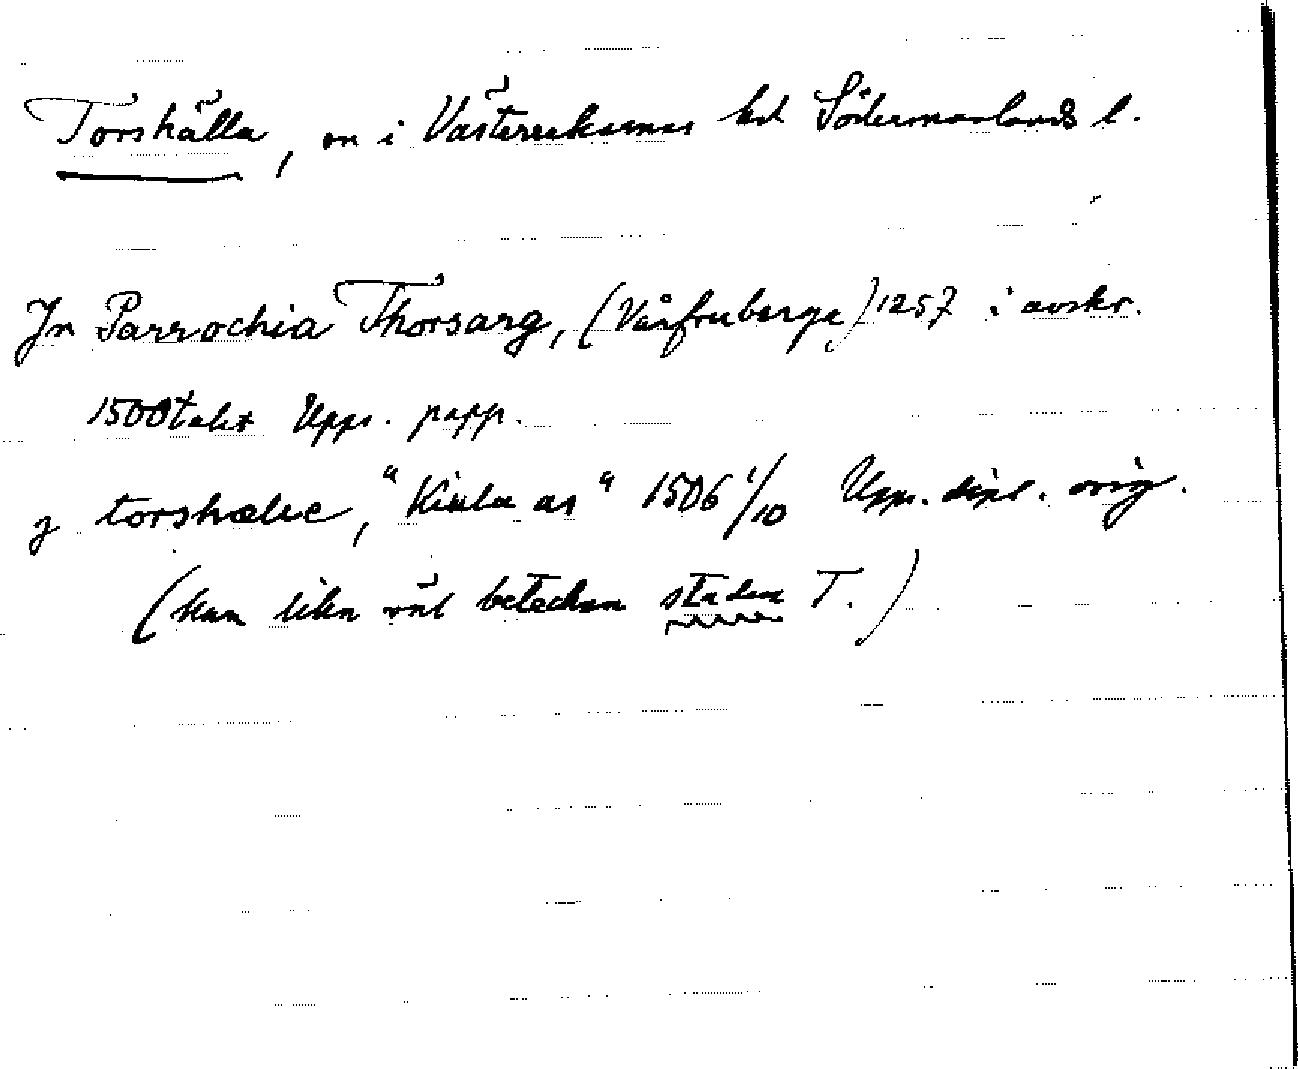 Torshälla, sn i Västerrekarnes hd Södermanlands l.
Jn Parrochia Thorsarg, (Vårfruberga) 1257 i avskr.
1500talet Upps. papp.
j torshælæ, "Kiula as" 1506 1/10 Upps. dipl. orig.
(kan lika väl beteckna staden T.)